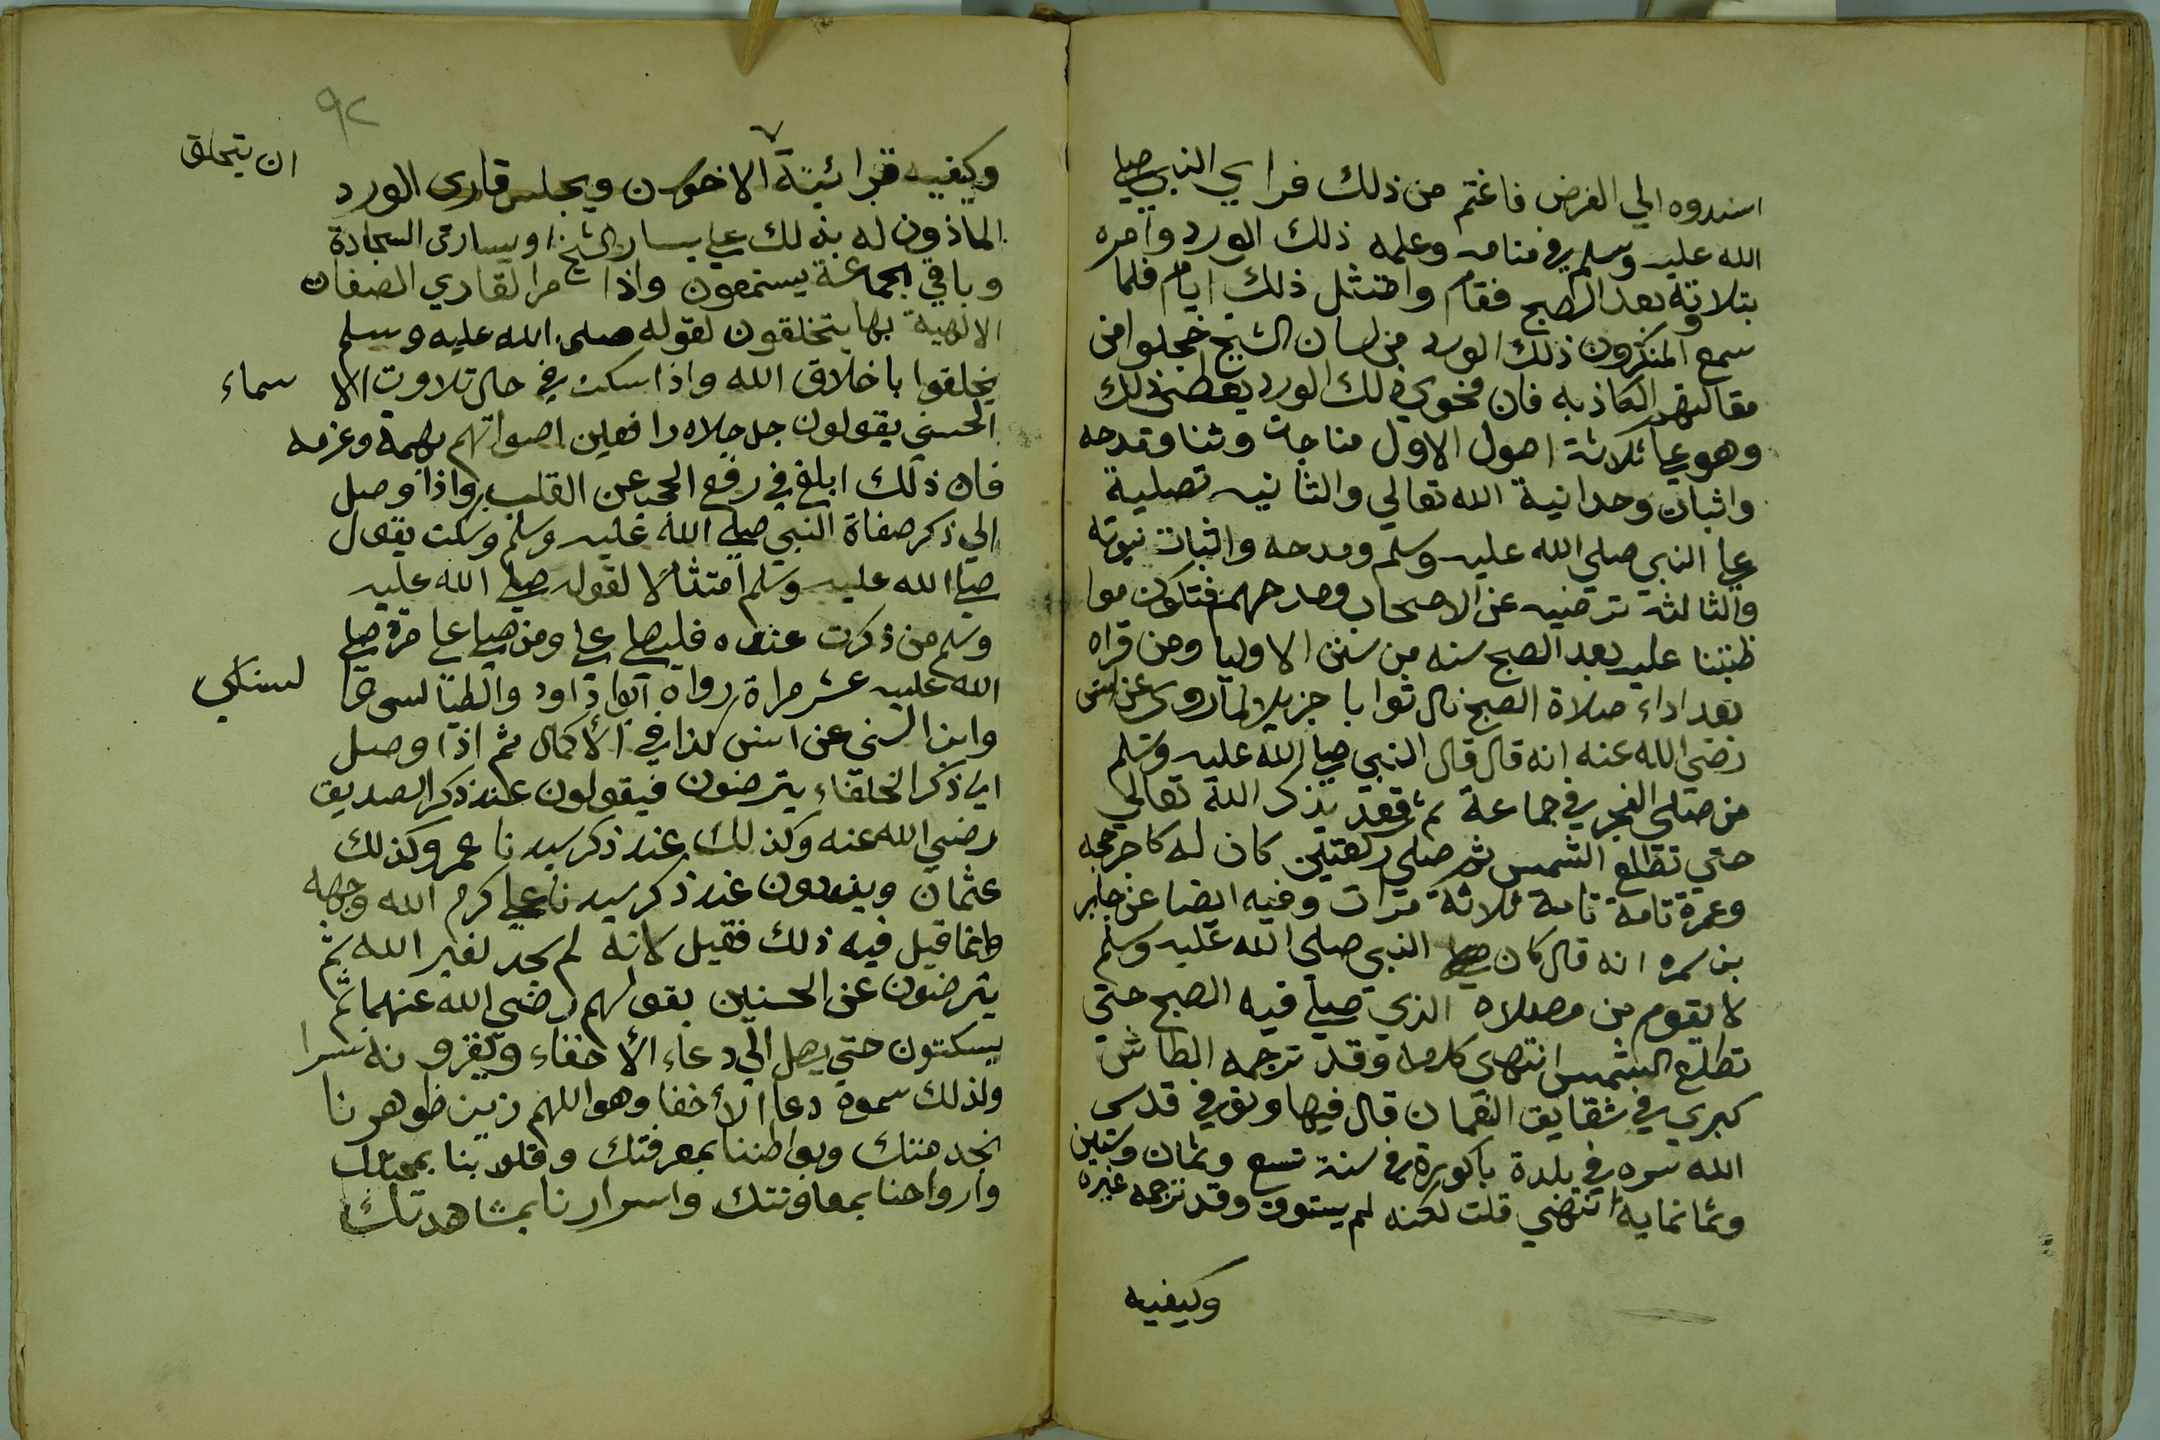 اسندوه الي الغرض فاغتم من ذلك فراي النبي صلي
الله عليه وسلم في منامه وعلمه ذلك الورد وامره
بتلاوته بعد الصبح فقام وامتثل ذلك ايام فلما
سمع المنكرون ذلك الورد من لسان الشيخ خجلوا من
مقالتهم الكاذبه فان فحوي ذلك الورد يعطي ذلك
وهو علي ثلاثة اصول الاول مناجات وثنا وقدحه
واثبات وحدانية الله تعالي والثانيه تصلية
علي النبي صلي الله عليه وسلم ومدحه واثبات نبوته
والثالثه ترضيه عن الاصحاب ومدحهم فتكون موا
ظبتنا عليه بعد الصبح سنه من سنن الاوليا ومن قراه
بعد اداء صلاة الصبح نال ثوابا جزيلا لما روي عن انس
رضي الله عنه انه قال قال النبي صلي الله عليه وسلم
من صلي الفجر في جماعة ثم قعد يذكر الله تعالي
حتي تطلع الشمس ثم صلي ركعتين كان له كاجر حجه
وعمرة تامة تامة ثلاثة مرات وفيه ايضا عن جابر
بن سمره انه قال كان النبي صلي الله عليه وسلم
لا يقوم من مصلاه الذي صلي فيه الصبح حتي
تطلع الشمس انتهي كلامه وقد ترجمه الطاش
كبري في شقايق النعمان قال فيها وتوفي قدس
الله سره في بلدة باكورة في سنة تسع وثمان وستين
وثمانمايه انتهي قلت لكنه لم يستوف وقد ترجمه غيره
وكيفيه
٩٢
وكيفيه قرائيته الاخوان ويجلس قاري الورد
ان يتحلق
الماذون له بذلك علي يسار الشيخ او يسار في السجادة
وباقي الجماعة يستمعون واذا مر القاري الصفات
الالهية بها يتخلقون لقوله صلي الله عليه وسلم
تخلقوا باخلاق الله واذا سكت في حال تلاوت الا
سماء
الحسني يقولون جل جلاله رافعين اصواتهم بهمة وعزمه
فان ذلك ابلغ في رفع الحجب عن القلب واذا وصل
الي ذكر صفاة النبي صلي الله عليه وسلم وسكت يقول
صلي الله عليه وسلم امتثالا لقوله صلي الله عليه
وسلم من ذكرت عنده فليصلي علي ومن صلي علي مرة صلي
الله عليه عشر مراة رواه ابوا داود والطيالسي
لسناي
وابن السني عن انس كذا في الاكمال ثم اذا وصل
الي ذكر الخلفاء يترضون فيقولون عند ذكر الصديق
رضي الله عنه وكذلك عند ذكر سيدنا عمر وكذلك
عثمان ويزيدون عند ذكر سيدنا علي كرم الله وجهه
وانما قيل فيه ذلك فقيل لانه لم يسجد لغير الله ثم
يترضون عن الحسنين بقولهم رضي الله عنهما ثم
يسكتون حتي يصل الي دعاء الأخفاء ويقرونه سرا
ولذلك سموه دعا الأخفا وهو اللهم زين ظواهرنا
بخدمتك وبواطننا بمعرفتك وقلوبنا بمحبتك
وارواحنا بمعاونتك واسرارنا بمشاهدتك